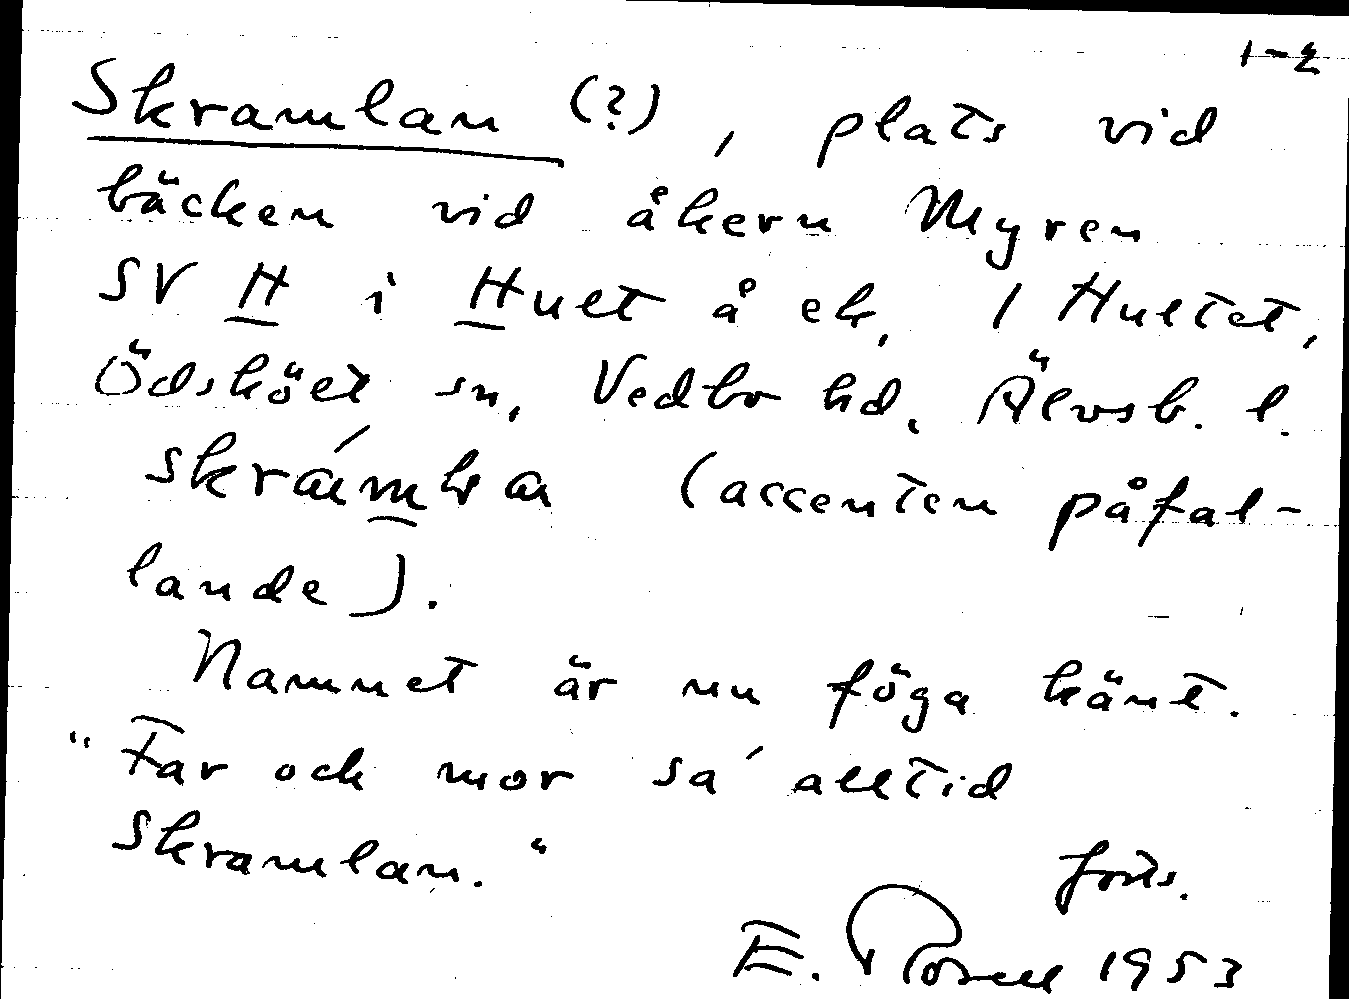 1-2
Skramlan (?), plats vid
bäcken vid åkern Myren
SV H i Hult å ek. 1 Hultet,
Ödskölt sn, Vedbo hd, Älvsb. l.
(accenten påfal-
lande).
Namnet är nu föga känt.
"Far och mor sa' alltid
Skramlan."
forts.
E. Rosell 1953